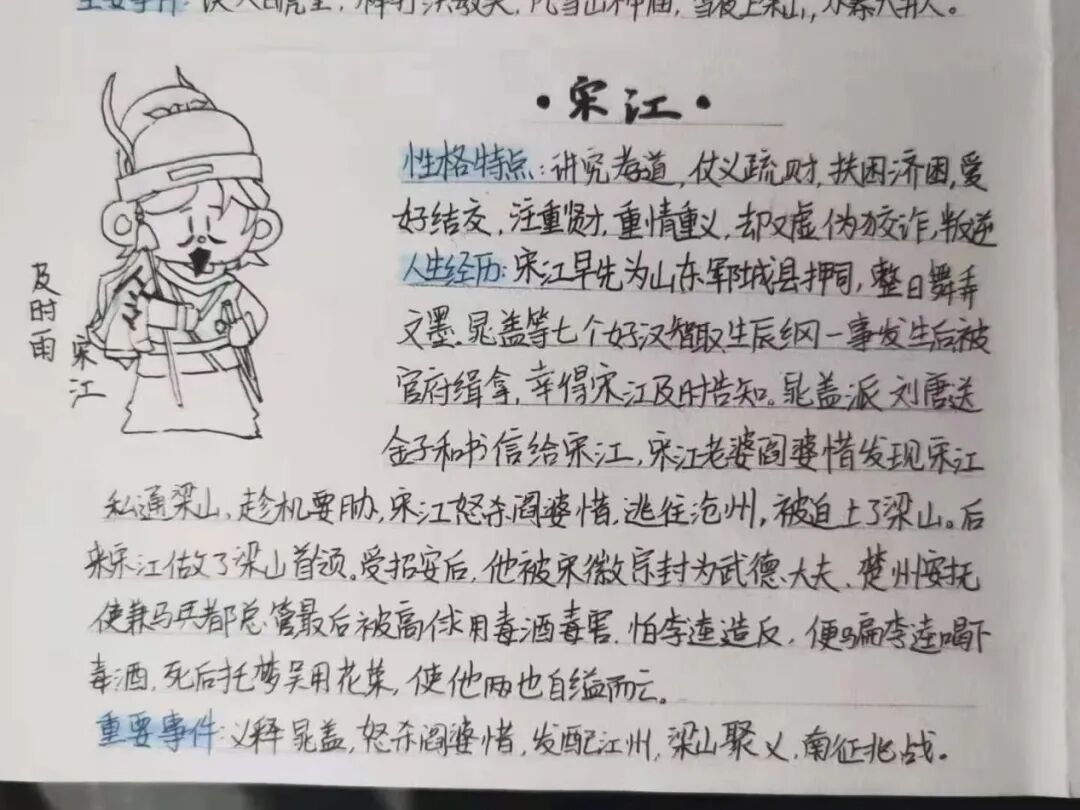 重要事件：误入白虎堂，棒打洪教头，风雪山神庙，雪夜上梁山，水寨大并火。
·宋江·
性格特点：讲究孝道，仗义疏财，扶困济困，爱
好结交，注重贤才，重情重义，却又虚伪狡诈，叛逆
人生经历：宋江早先为山东郓城县押司，整日舞弄
文墨。晁盖等七个好汉智取生辰纲一事发生后被
官府缉拿，幸得宋江及时告知。晁盖派刘唐送
金子和书信给宋江，宋江老婆阎婆惜发现宋江
私通梁山，趁机要胁，宋江怒杀阎婆惜，逃往沧州，被迫上了梁山。后
来宋江做了梁山首领。受招安后，他被宋徽宗封为武德大夫、楚州安抚
使兼马兵都总管最后被高俅用毒酒毒害，怕李逵造反，便骗李逵喝下
毒酒，死后托梦吴用花荣，使他两也自缢而亡。
重要事件：义释晁盖，怒杀阎婆惜，发配江州，梁山聚义，南征北战。
及时雨
宋江